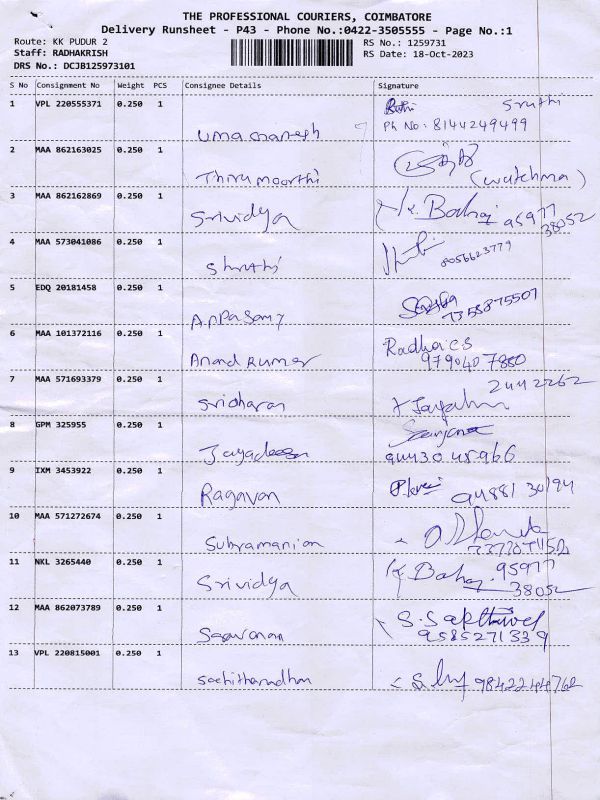 THE PROFESSIONAL COURIERS, COIMBATORE
Delivery Runsheet - P43 - Phone No.:0422-3505555 - Page No.:1
Route: KK PUDUR 2 RS No.: 1259731
Staff: RADHAKRISH RS Date: 18-Oct-2023
DRS No.: DCJB125973101
S No Consignment No Weight PCS Consignee Details Signature
1 VPL 220555371 0.250 1 Sruthi
Ph No: 8144249499
umamahesh
2 MAA 862163025 0.250 1
Thirumoorthi (watchma)
3 MAA 862162869 0.250 1
Srividya K. Balaji 95977
38052
4 MAA 573041086 0.250 1
Shruthi 8056623779
5 EDQ 20181458 0.250 1
Appasamy 7358875507
6 MAA 101372116 0.250 1 Radha CS
Anand kumar 9790407880
7 MAA 571693379 0.250 1 2442262
Sridharan
8 GPM 325955 0.250 1 Sanjana
Jayadeesan 94430 45966
9 IXM 3453922 0.250 1
Ragavan 94881 30194
10 MAA 571272674 0.250 1
Subramanian
11 NKL 3265440 0.250 1 K. Balaji 95977
Srividya 38052
12 MAA 862073789 0.250 1 S. Sakthivel
Saravanan 9585271339
13 VPL 220815001 0.250 1
Sachithanandham 9842244762